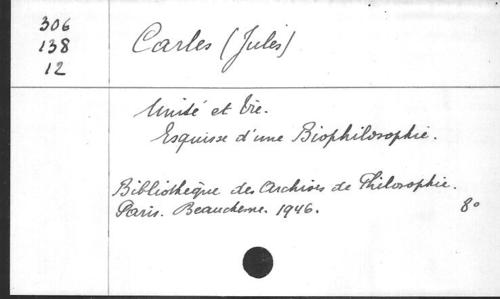 306
138
12
Carles (Jules)
Unité et Vie.
Esquisse d'une Biophilosophie.
Bibliothèque des Archives de Philosophie.
Paris. Beauchesne. 1946. 8°